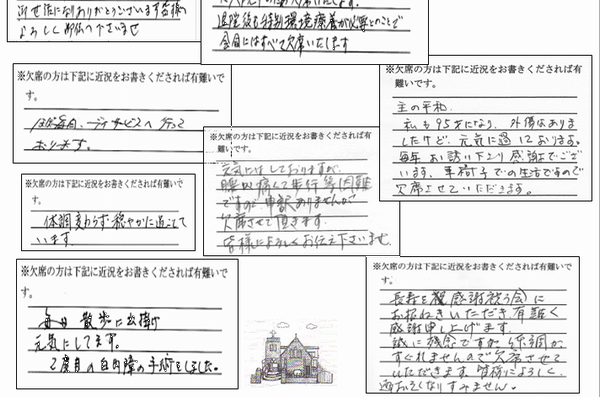 よろしくお伝え下さいませ
退院後も特別環境療養が必要とのことで
会合にはすべて欠席いたします
※欠席の方は下記に近況をお書きくだされば有難いで
す。
ほぼ毎日、デイサービスへ行って
おります。
※欠席の方は下記に近況をお書きくだされば有難いで
す。
主の平和
私も95才になり、外傷はありま
したけど、元気に過しております。
毎年お誘い下さり感謝でござ
います、車椅子での生活ですので
欠席させていただきます。
※欠席の方は下記に近況をお書きくだされば有
難いです。
元気にはしておりますが、
腰が痛くて歩行等困難
ですので申訳ありませんが
欠席させて頂きます。
皆様によろしくお伝え下さいませ
※欠席の方は下記に近況をお書きくだされば有難いで
す。
体調変わらず穏やかに過ごして
います
※欠席の方は下記に近況をお書きくだされば有難いで
す。
毎日散歩に出掛け
元気にしてます。
2度目の白内障の手術をしました。
※欠席の方は下記に近況をお書きくだされば有難いで
す。
長寿を祝感謝祝う会に
お招ねきいただき有難く
感謝申し上げます。
誠に残念ですが、体調が
すぐれませんので欠席させて
いただきます。皆様によろしく、
遅くなりすみません。